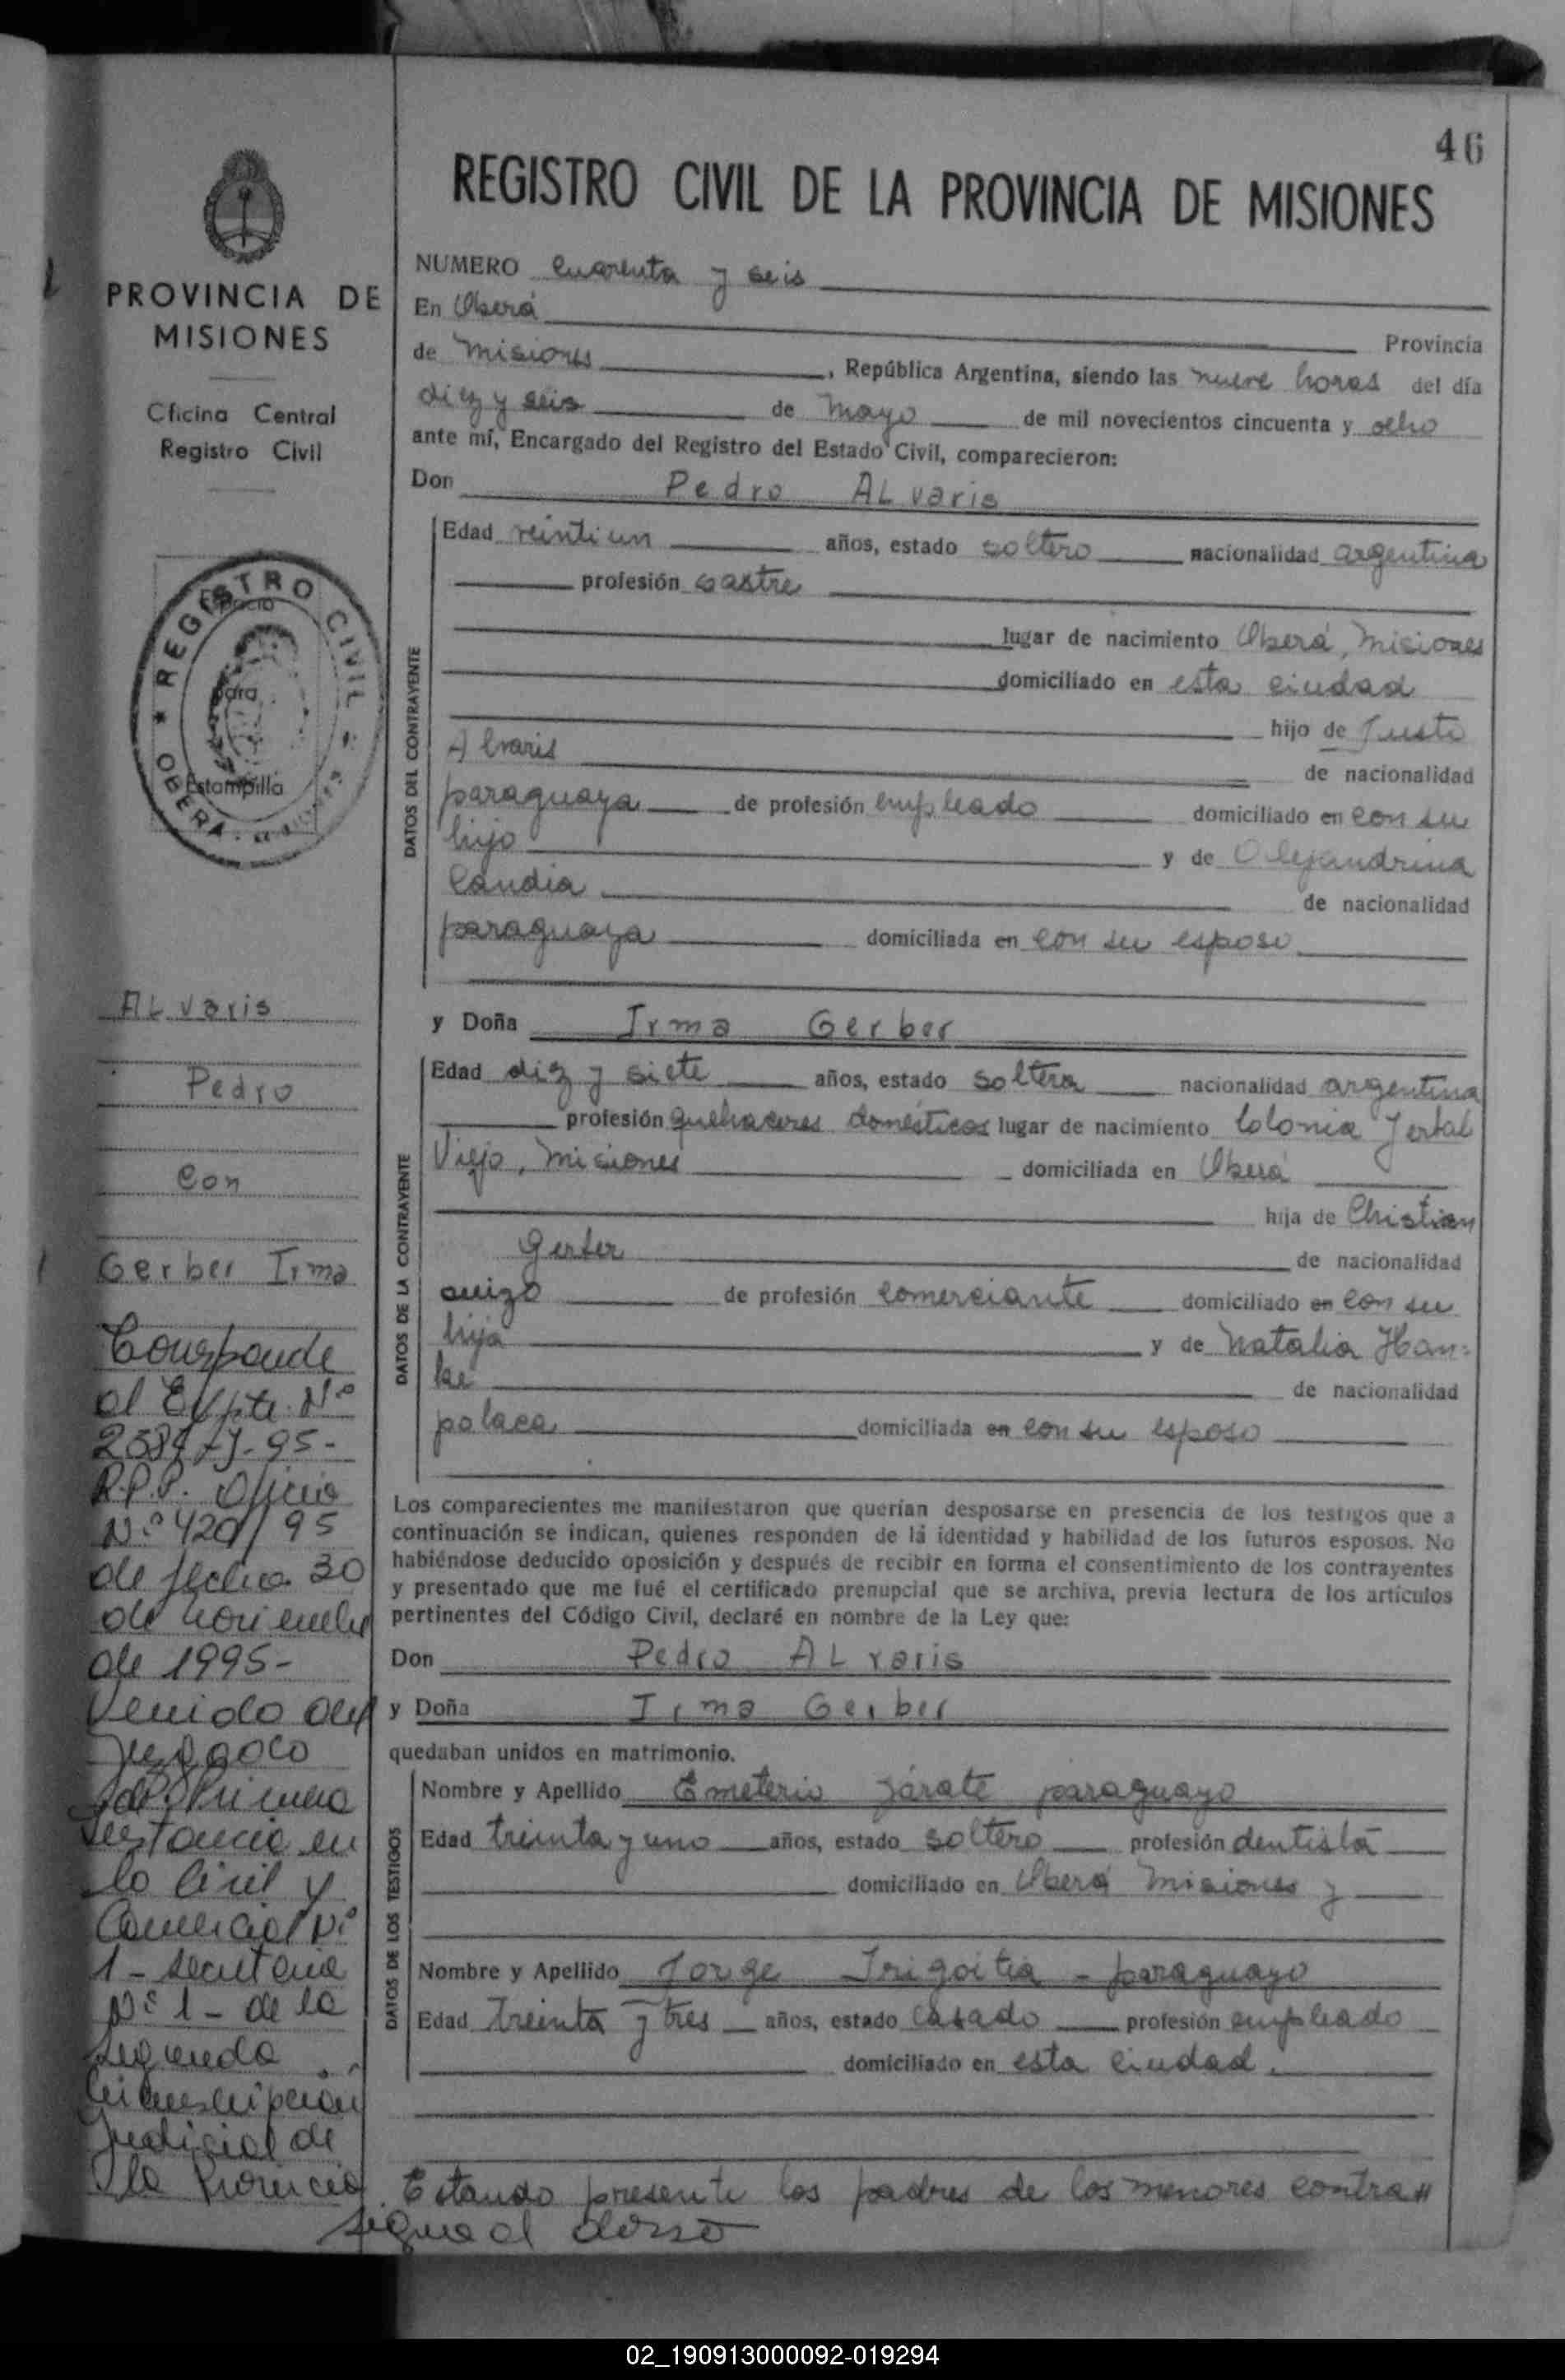 46
REGISTRO CIVIL DE LA PROVINCIA DE MISIONES
PROVINCIA DE
MISIONES
Oficina Central
Registro Civil
REGISTRO CIVIL
OBERA
Espacio
para
Estampilla
ALvaris
Pedro
con
Gerber Irma
Corresponde
al Expte. Nº
R.P.P. Oficio
Nº 420/95
de fecha 30
de noviembre
de 1995-
Venido del
Juzgado
de Primera
Instancia en
lo Civil y
Comercial Nº
1 - Secretaria
Nº 1 - de la
Segunda
Circunscripción
Judicial de
la Provincia
sigue al dorso
NUMERO cuarenta y seis
En Oberá
Provincia
de Misiones, República Argentina, siendo las nueve horas del día
diez y seis de Mayo de mil novecientos cincuenta y ocho
ante mí, Encargado del Registro del Estado Civil, comparecieron:
Don Pedro ALvaris
DATOS DEL CONTRAYENTE
Edad veintiun años, estado soltero nacionalidad argentina
profesión sastre
lugar de nacimiento Oberá, Misiones
domiciliado en esta ciudad
hijo de Justo
Alvaris
de nacionalidad
paraguaya de profesión empleado domiciliado en con su
hijo y de Alejandrina
Candia
de nacionalidad
paraguaya domiciliada en con su esposo
y Doña Irma Gerber
DATOS DE LA CONTRAYENTE
Edad diz y siete años, estado soltera nacionalidad argentina
profesión quehaceres domésticos lugar de nacimiento Colonia Yerbal
Viejo, Misiones domiciliada en Oberá
hija de Christian
Gerber
de nacionalidad
suizo de profesión comerciante domiciliado en con su
hija y de Natalia Han=
ke
de nacionalidad
polaca domiciliada en con su esposo
Los comparecientes me manifestaron que querían desposarse en presencia de los testigos que a
continuación se indican, quienes responden de la identidad y habilidad de los futuros esposos. No
habiéndose deducido oposición y después de recibir en forma el consentimiento de los contrayentes
y presentado que me fué el certificado prenupcial que se archiva, previa lectura de los artículos
pertinentes del Código Civil, declaré en nombre de la Ley que:
Don Pedro ALvaris
y Doña Irma Gerber
quedaban unidos en matrimonio.
DATOS DE LOS TESTIGOS
Nombre y Apellido Emeterio Zárate paraguayo
Edad treinta y uno años, estado soltero profesión dentista
domiciliado en Oberá Misiones y
Nombre y Apellido Jorge Irigoitia - paraguayo
Edad treinta y tres años, estado casado profesión empleado
domiciliado en esta ciudad.
Estando presente los padres de los menores contra"
02_190913000092-019294